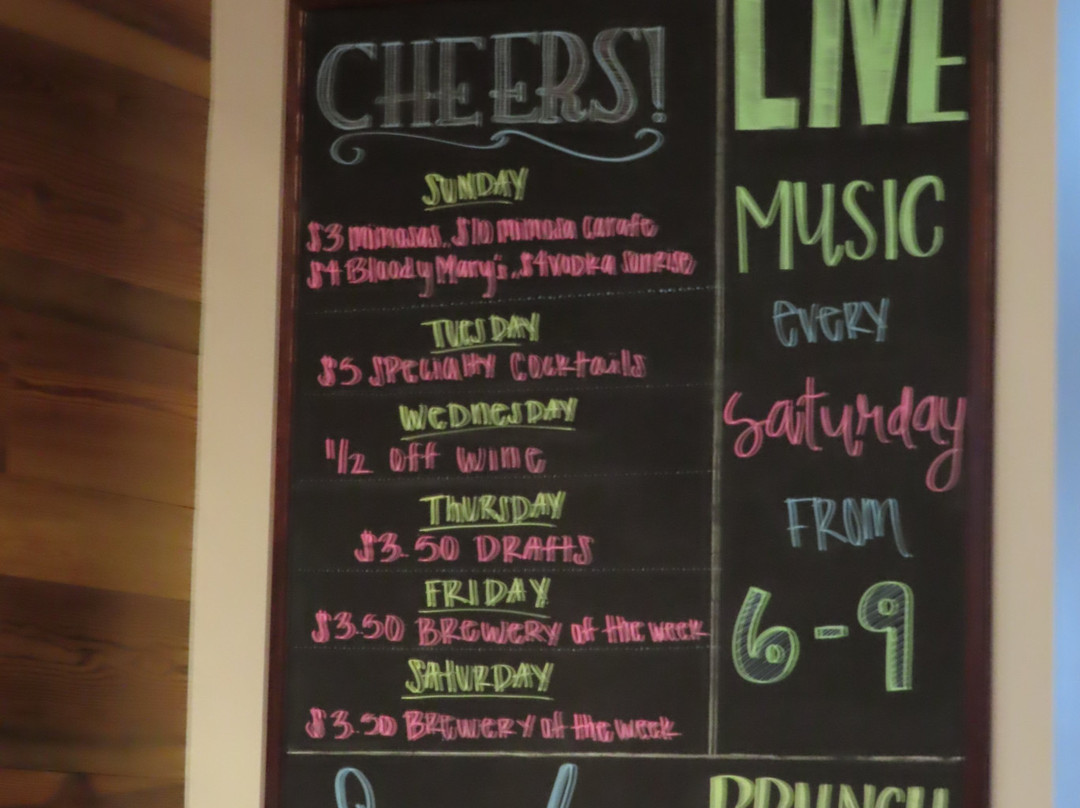 CHEERS!
SUNDAY
$3 mimosas.. $10 mimosa carafe
$4 Bloody Mary's.. $4 vodka sunrise
TUESDAY
$5 SPECIALTY COCKTAILS
WEDNESDAY
1/2 off wine
THURSDAY
$3.50 DRAFTS
FRIDAY
$3.50 BREWERY of the week
SATURDAY
$3.50 BREWERY of the week
LIVE
MUSIC
every
Saturday
FROM
6-9
BRUNCH